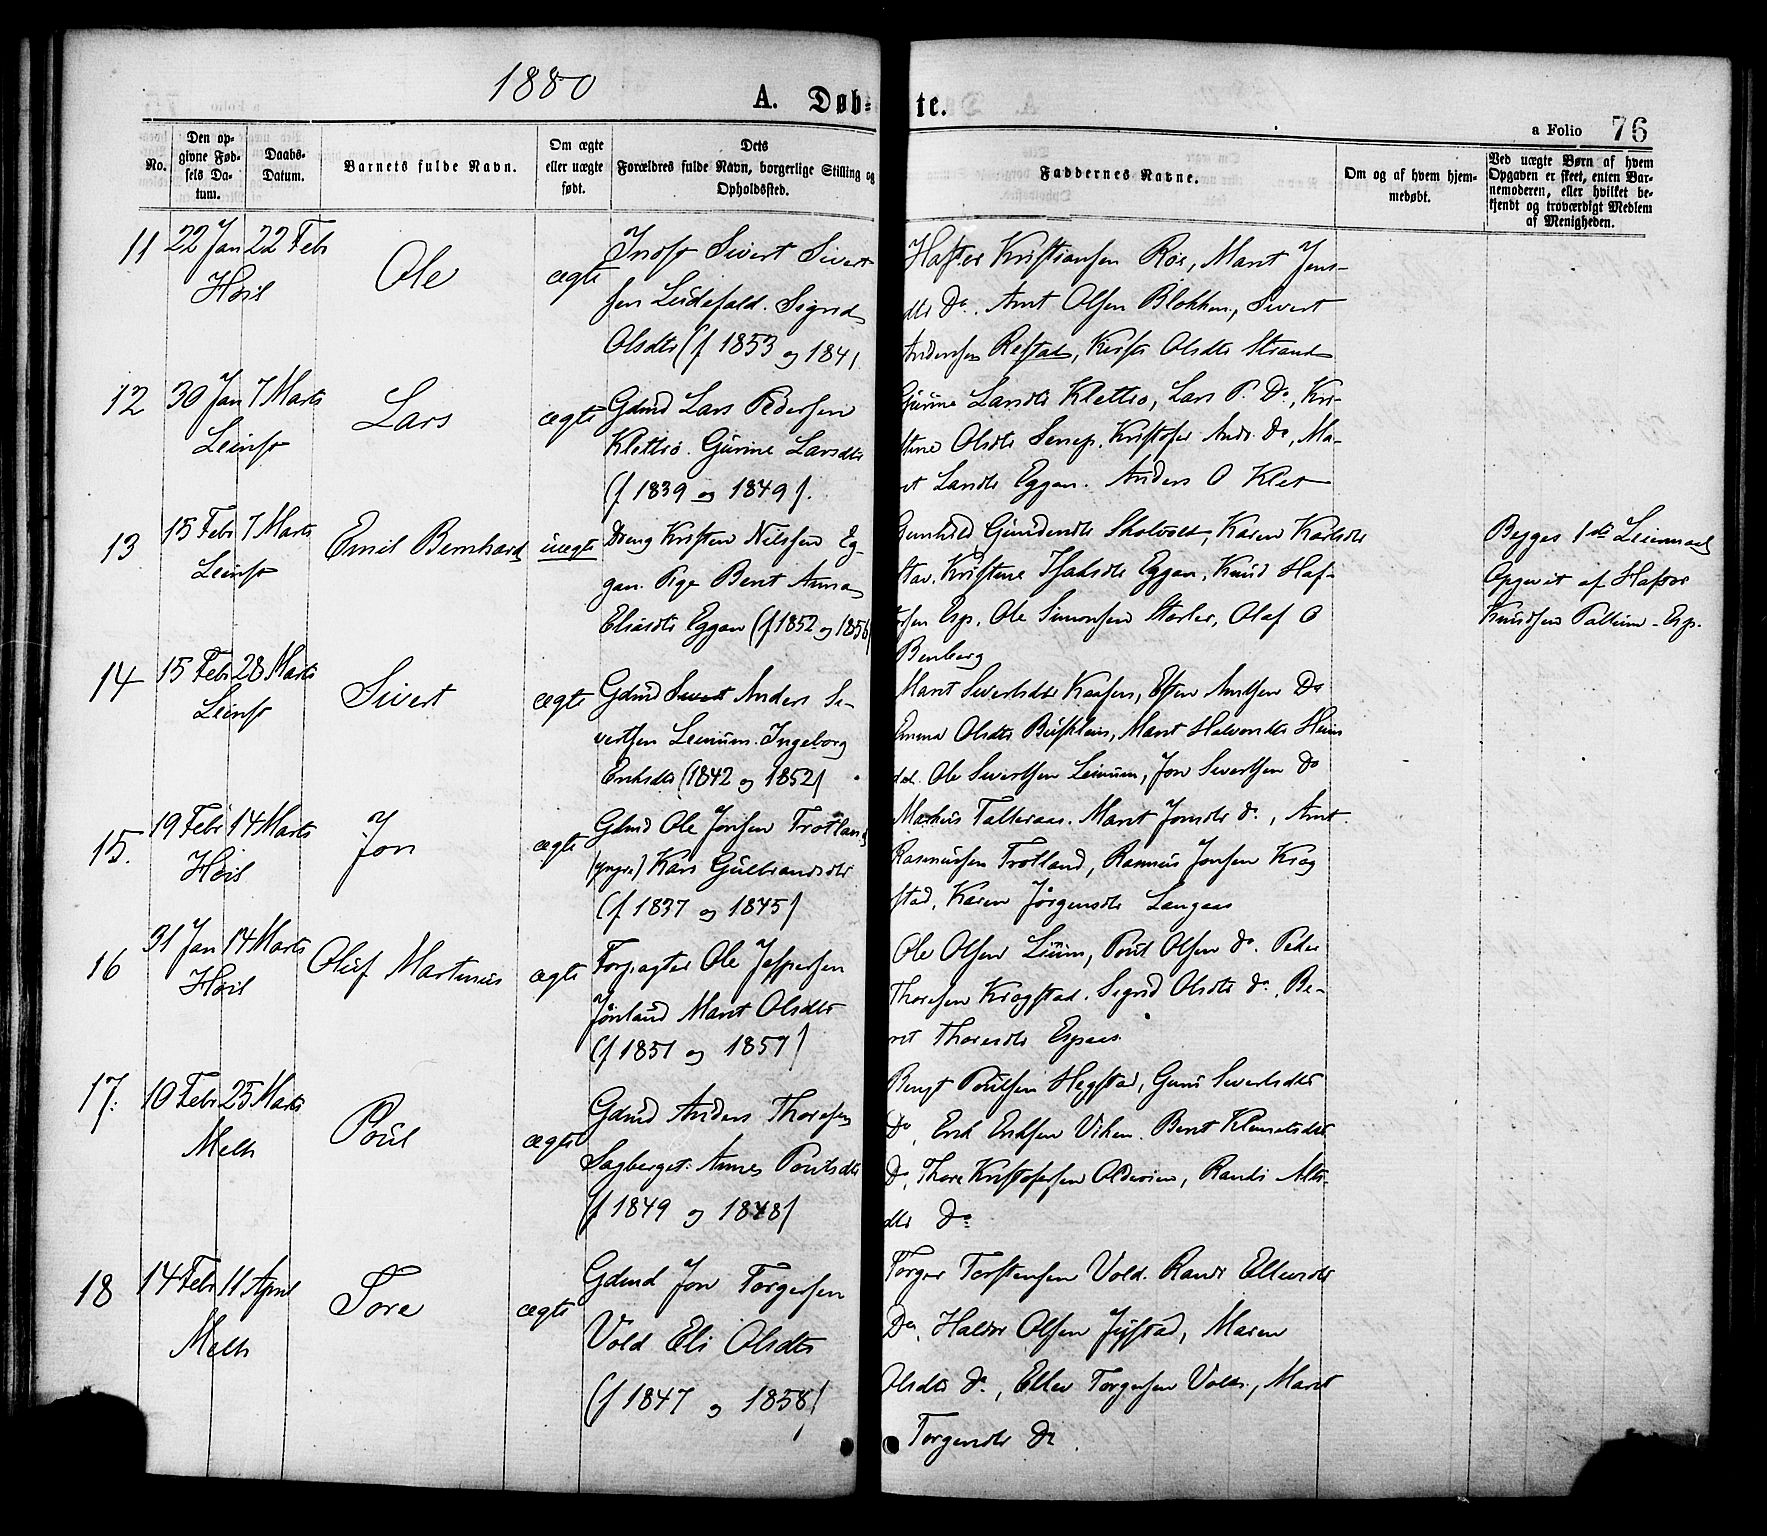 1880
A. Døb-te.
a Folio 76
No.
Den op-
givne Fød-
sels Da-
tum.
Daabs-
Datum.
Barnets fulde Navn.
Om ægte
eller uægte
født.
Dets
Forældres fulde Navn, borgerlige Stilling og
Opholdssted.
Faddernes Navne.
Om og af hvem hjem-
medøbt.
Ved uægte Børn af hvem
Opgaven er skeet, enten Bar-
nemoderen, eller hvilket be-
kjendt og troværdigt Medlem
af Menigheden.
11 22 Jan 22 Febr
Høil
Ole
ægte
Sivert Sivert
sen Sigrid
Olsdtr (f 1853 og 1841
Kristiansen Røe, Marit Jens-
dtr Do. Arnt Olsen Blokken, Sivert
Andersen Olsdtr Strand
12 30 Jan 7 Marts
Leinst
Lars
ægte
Gdmd Lars Pedersen
Klettrø. Gurine Larsdtr
(f 1839 og 1849).
Gurine Larsdtr Klettrø, Lars P. Do, Kri-
stine Olsdtr Kristofer Andr. Do, Ma-
rit Larsdtr Eggan. Anders O Klet
13 15 Febr 7 Marts
Leinst
Emil Bernhard
uægte
Dreng Kristen Nilssen Eg-
gan. Pige Berit Anna
Eliasdtr Eggan (f 1852 og 1856
Gunhild Karen Karlsdtr
Kristine Isaksdtr Eggan, Knud Haf-
Esp, Ole Simonsen Olaf O
Benberg
Begges 1ste Leiermaal
Opgivet af Haftor
Knudsen Esp.
14 15 Febr 28 Marts
Leinst
Sivert
ægte
Gdmd Sivert Anders Si-
vertsen Leinum. Ingeborg
Eriksdtr (1842 og 1852)
Marit Sivertsdtr Kaasen, Esten Arntsen Do
Emma Olsdtr Marit Halvorsdtr Heim
dal. Ole Sivertsen Leinum, Jon Sivertsen Do
15. 19 Febr 14 Marts
Høil
Jon
ægte
Gdmd Ole Jonsen Trotland
(yngre) Kari Gulbrandsdtr
(f 1837 og 1845)
Markus Marit Jonsdtr Do, Arnt
Rasmussen Trotland, Rasmus Jonsen Krog
stad, Karen Jørgensdtr Langaas
16 31 Jan 14 Marts
Høil
Oluf Martinus
ægte
Forpagter Ole Jespersen
Marit Olsdtr
(f 1851 og 1857)
Ole Olsen Poul Olsen Do. Peder
Thoresen Krogstad. Sigrid Olsdtr Do, Be-
rit Thoresdtr Espaas
17. 10 Febr 25 Marts
Melh
Poul
ægte
Gdmd Anders Thoresen
Sagberget. Anne Poulsdtr
(f 1849 og 1848)
Bengt Poulsen Hegstad, Guru Sivertsdtr
Do, Erik Eriksen Viken. Berit Klemetsdtr
Do, Thore Kristofersen Randi
dtr Do
18 14 Febr 11 April
Melh
Tore
ægte
Gdmd Jon Torgersen
Vold Eli Olsdtr
(f 1847 og 1858)
Torger Torstensen Vold. Randi Ellevsdtr
Do, Haldor Olsen Maren
Olsdtr Do, Ellev Torgersen Vold, Marit
Torgersdtr Do